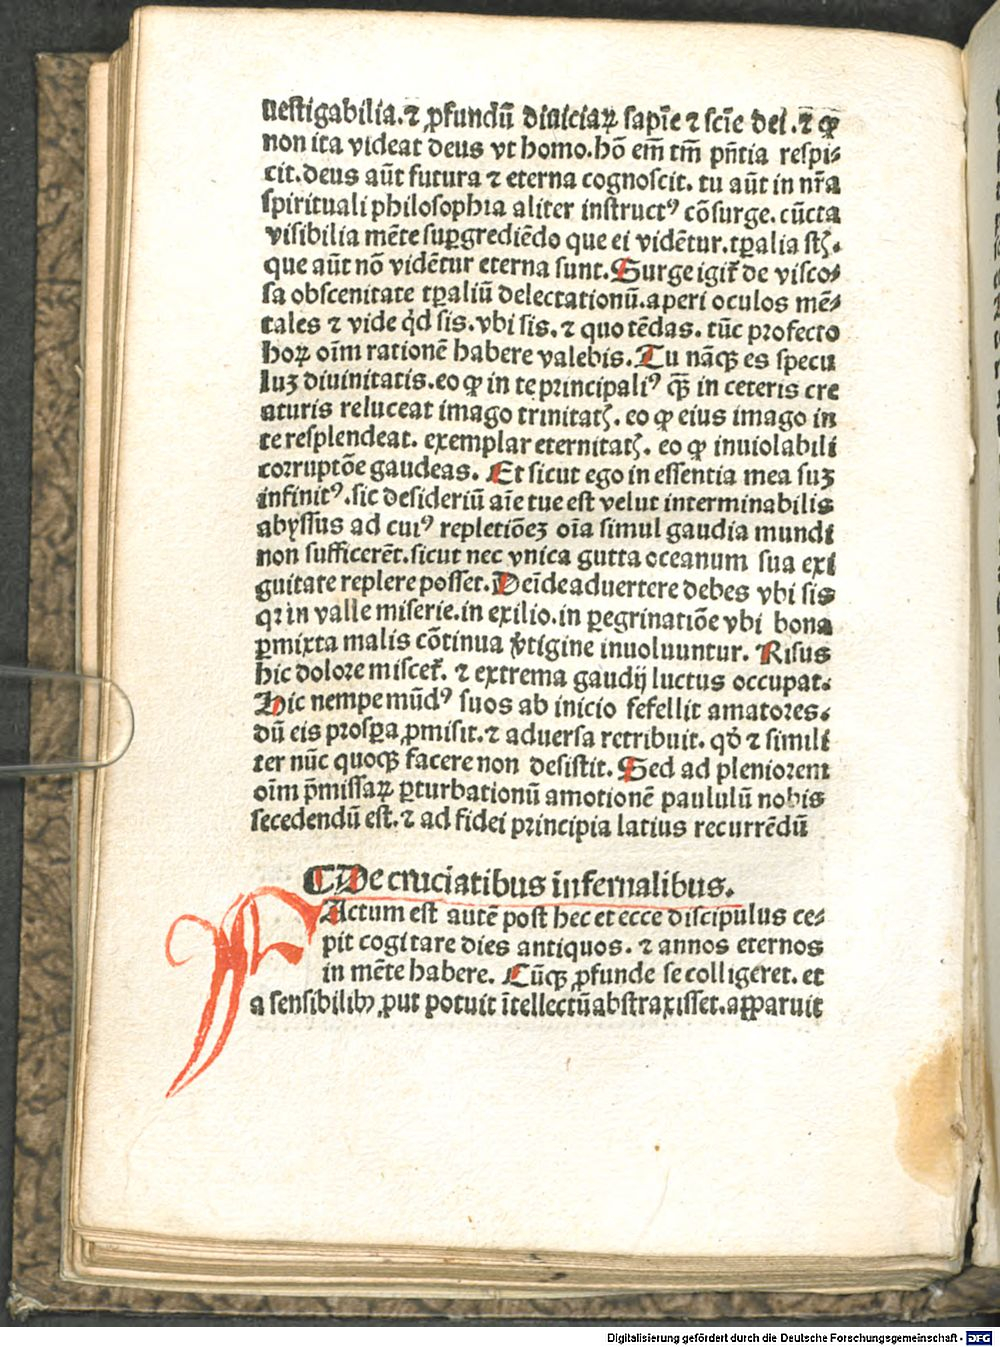 uestigabilia.⁊ ꝓfundū diuiciaꝝ sapīe ⁊ scīe dei.⁊ ꝙ
non ita videat deus vt homo.hō em̄ tm̄ pn̄tia respi⸗
cit.deus aūt futura ⁊ eterna cognoscit. tu aūt in nr̄a
spirituali philosophia aliter instructꝰ cōsurge. cūcta
visibilia mēte suꝑgrediēdo que ei vidētur.tꝑalia stꝫ.
que aūt nō vidētur eterna sunt.Surge igit̄ de visco⸗
sa obscenitate tꝑaliū delectationū.aperi oculos mē⸗
tales ⁊ vide qͥd sis.vbi sis. ⁊ quo tēdas. tūc profecto
hoꝝ oīm rationē habere valebis. Tu nāqꝫ es specu
luꝫ diuinitatis.eo ꝙ in te principaliꝰ qͣꝫ in ceteris cre
aturis reluceat imago trinitatꝭ. eo ꝙ eius imago in
te resplendeat. exemplar eternitatꝭ. eo ꝙ inuiolabili
corruptōe gaudeas. Et sicut ego in essentia mea suꝫ
infinitꝰ.sic desideriū aīe tue est velut interminabilis
abyssus ad cuiꝰ repletiōeꝫ oīa simul gaudia mundi
non sufficerēt.sicut nec vnica gutta oceanum sua exi
guitate replere posset. Deīde aduertere debes vbi sis
qꝛ in valle miserie.in exilio.in ꝑegrinatiōe vbi bona
ꝑmixta malis cōtinua v̓tigine inuoluuntur. Risus
hic dolore miscet̄. ⁊ extrema gaudij luctus occupat.
Hic nempe mūdꝰ suos ab inicio fefellit amatores.
dū eis prosꝑa ꝓmisit.⁊ aduersa retribuit. qd̓ ⁊ simili
ter nūc quoqꝫ facere non desistit. Sed ad pleniorem
oīm p̄missaꝝ ꝑturbationū amotionē paululū nobis
secedendū est.⁊ ad fidei principia latius recurrēdū
¶ De cruciatibus infernalibus.
FActum est autē post hec et ecce discipulus ce⸗
pit cogitare dies antiquos. ⁊ annos eternos
in mēte habere. Cūqꝫ ꝓfunde se colligeret. et
a sensibilibꝰ ꝓut potuit ītellectū abstraxisset.apparuit
Digitalisierung gefördert durch die Deutsche Forschungsgemeinschaft - DFG